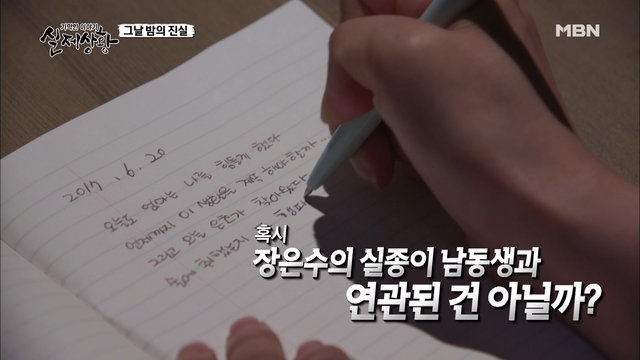 기막힌 이야기
실제상황
그날 밤의 진실
MBN
2017. 6. 20
오늘도 엄마는 나를 힘들게 했다
언제까지 이 생활을 계속 해야할까...
그리고 오늘 찾아왔다
술에
혹시
장은수의 실종이 남동생과
연관된 건 아닐까?